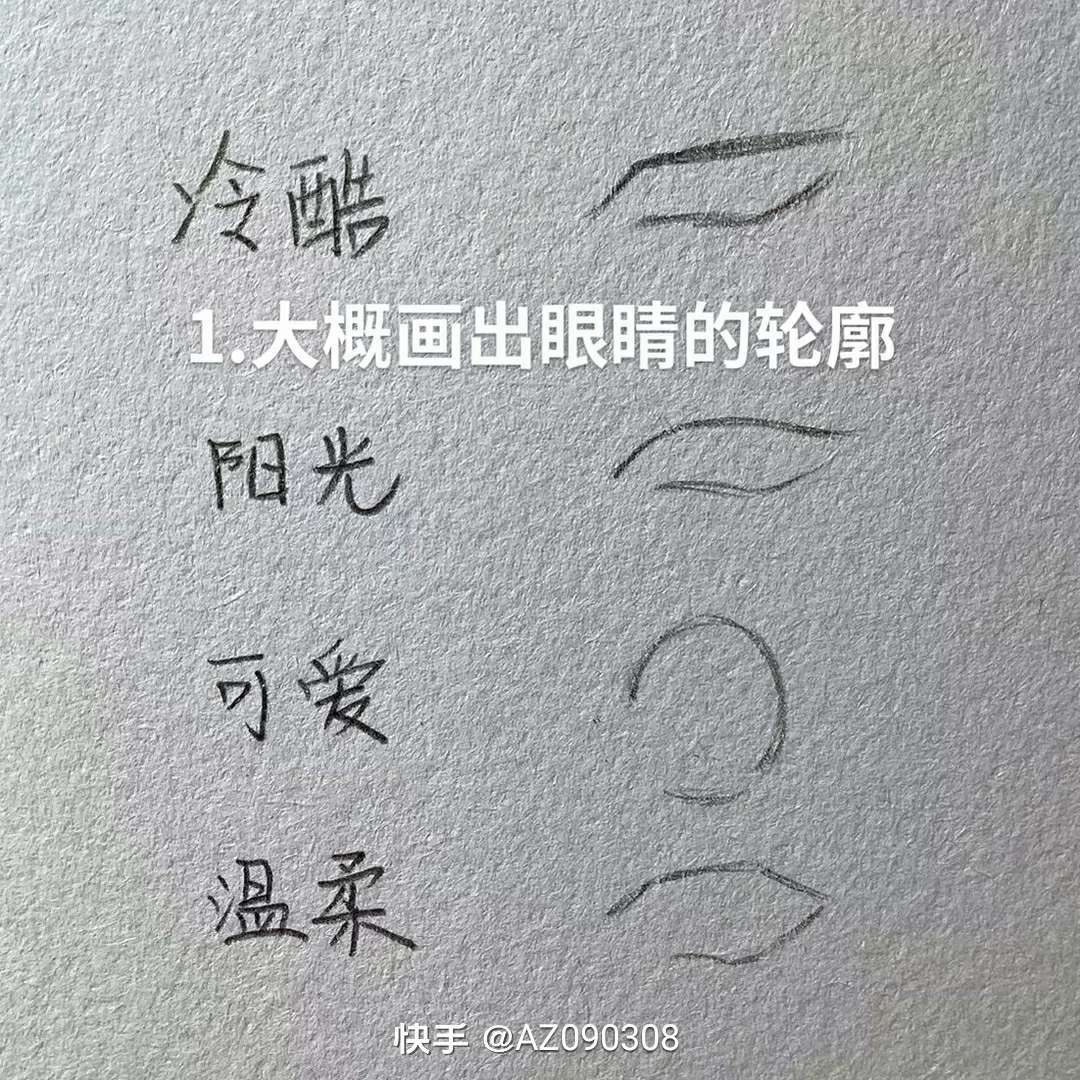 冷酷
1.大概画出眼睛的轮廓
阳光
可爱
温柔
快手 @AZ090308